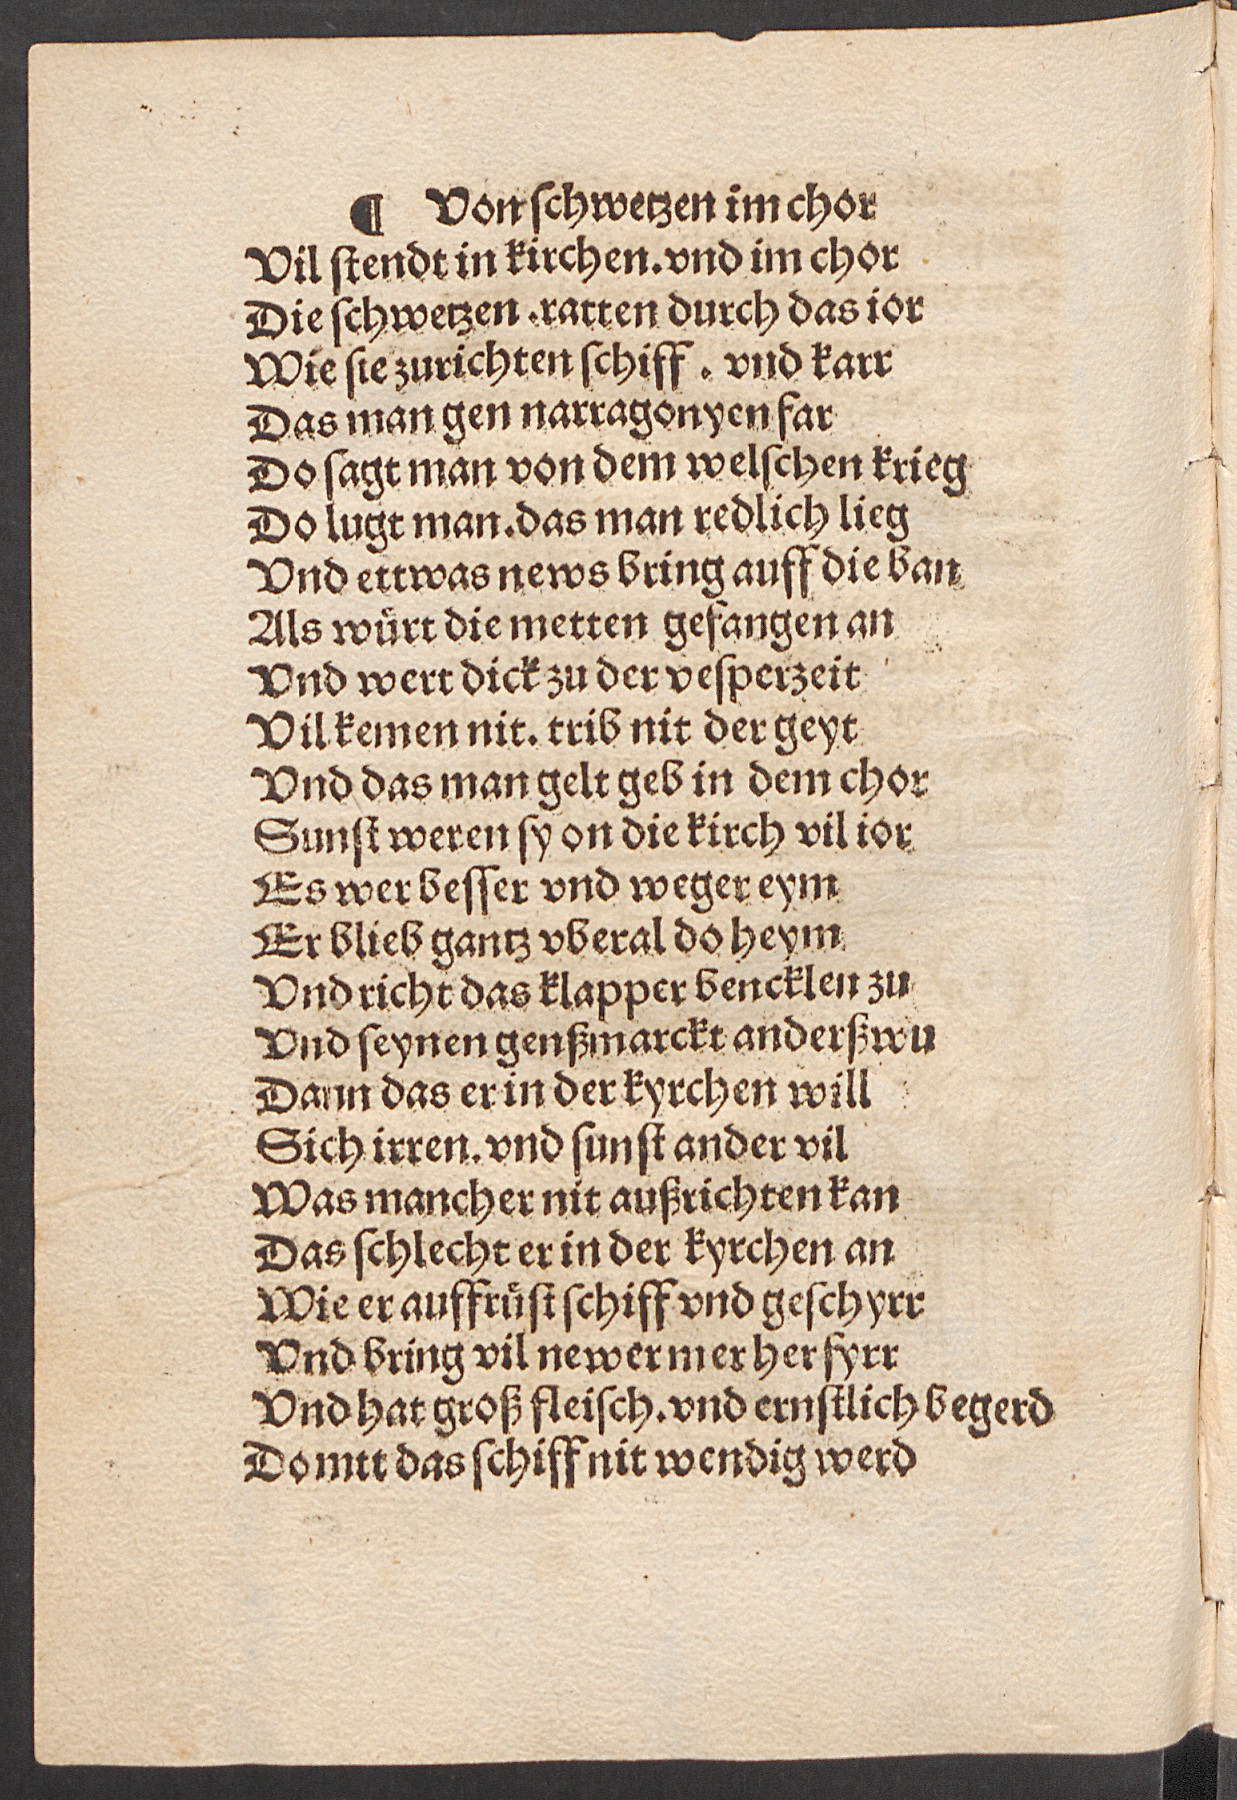 ¶ Von schwetzen im chor
Vil stendt in kirchen. vnd im chor
Die schwetzen. ratten durch das ior
Wie sie zurichten schiff. vnd karr
Das man gen narragonyen far
Do sagt man von dem welschen krieg
Do lugt man. das man redlich lieg
Vnd ettwas news bring auff die ban
Als wuͤrt die metten gefangen an
Vnd wert dick zu der vesperzeit
Vil kemen nit. trib nit der geyt
Vnd das man gelt geb in dem chor
Sunst weren sy on die kirch vil ior
Es wer besser vnd weger eym
Er blieb gantz vberal do heym
Vnd richt das klapper bencklen zu
Vnd seynen genßmarckt anderßwu
Dann das er in der kyrchen will
Sich irren. vnd sunst ander vil
Was mancher nit außrichten kan
Das schlecht er in der kyrchen an
Wie er auffruͤst schiff vnd geschyrr
Vnd bring vil newer mer her fyrr
Vnd hat groß fleisch. vnd ernstlich begerd
Domtt das schiff nit wendig werd